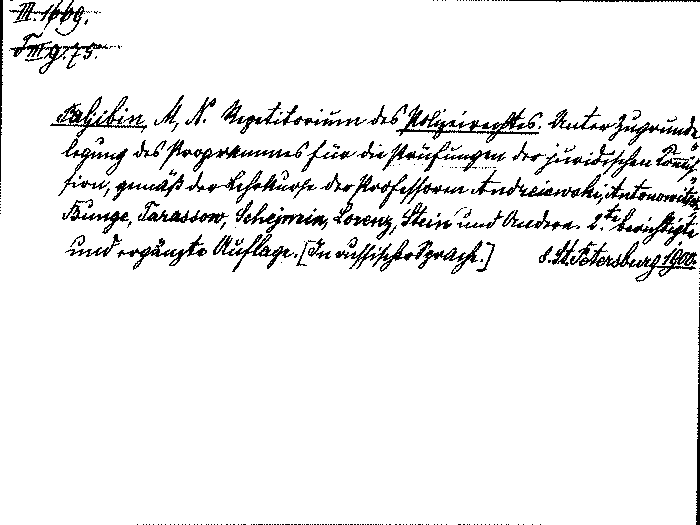 III. 1669.
III g. 75.
Paljibin, M, N. Repetitorium des Polizeirechtes. Unter Zugrunde
legung des Programmes für die Prüfungen der juridischen Commis
sion, gemäß der Lehrkurse der Professoren Andreiewski, Antonowitsch
Bunge, Tarassow, Schejmin, Lorenz, Stein und Andere. 2.te berichtigte
und ergänzte Auflage. [In russischer Sprache.] 8. St. Petersburg 1900.